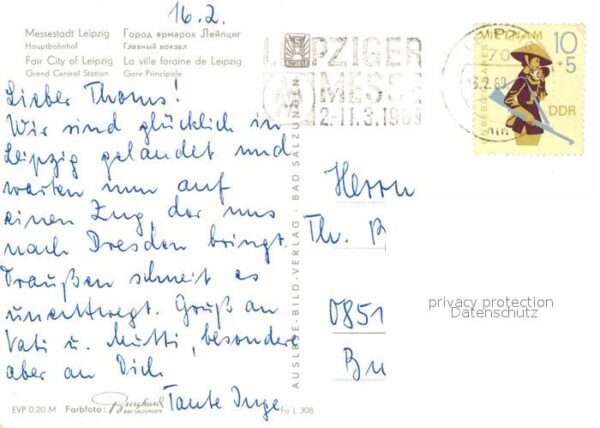 16.2.
Messestadt Leipzig
Hauptbahnhof
Fair City of Leipzig
Grand Central Station
Город ярмарок Лейпциг
Главный вокзал
La ville foraine de Leipzig
Gare Principale
Lieber Thoms!
Wir sind glücklich in
Leipzig gelandet und
warten nun auf
einen Zug, der uns
nach Dresden bringt.
Draußen schneit es
unentwegt. Gruß an
Vati u. Mutti, besonders
aber an Dich
Tante Inge
EVP 0.20 M Farbfoto: Burghard BAD SALZUNGEN Fo L 308
AUSLESE-BILD-VERLAG · BAD SALZUNGEN
LEIPZIGER
MESSE
2.-11.3.1969
UNBESIEGBARES VIETNAM
10
+5
DDR
Herrn
Th.
0851
privacy protection
Datenschutz